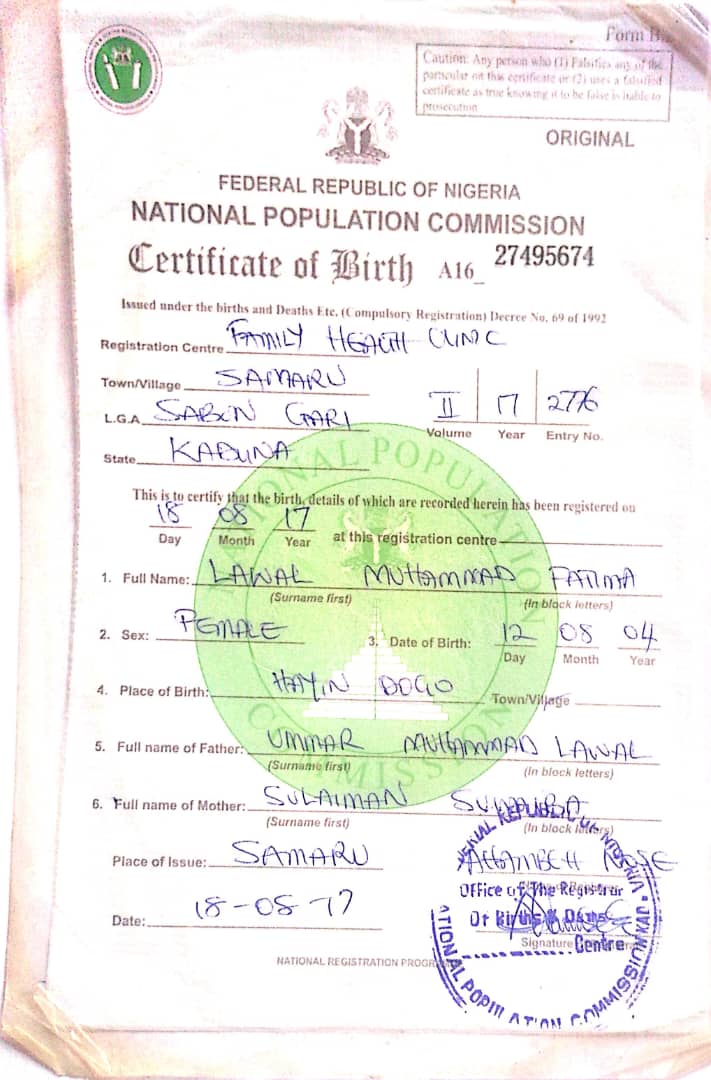 Form B
Caution: Any person who (1) Falsifies any of the
particular on this certificate or (2) uses a falsified
certificate as true knowing it to be false is liable to
prosecution
ORIGINAL
FEDERAL REPUBLIC OF NIGERIA
NATIONAL POPULATION COMMISSION
Certificate of Birth A16_ 27495674
Issued under the births and Deaths Etc. (Compulsory Registration) Decree No. 69 of 1992
Registration Centre FAMILY HEALTH CLINIC
Town/Village SAMARU
L.G.A. SABON GARI
State KADUNA
II 17 2776
Volume Year Entry No.
This is to certify that the birth, details of which are recorded herein has been registered on
18 08 17
Day Month Year at this registration centre
1. Full Name: LAWAL MUHAMMAD FATIMA
(Surname first) (In block letters)
2. Sex: FEMALE 3. Date of Birth: 12 08 04
Day Month Year
4. Place of Birth: HAYIN DOGO Town/Village
5. Full name of Father: UMMAR MUHAMMAD LAWAL
(Surname first) (In block letters)
6. Full name of Mother: SULAIMAN
(Surname first) (In block letters)
Place of Issue: SAMARU
Date: 18-08-17
Signature
NATIONAL REGISTRATION PROGR
Office of The Registrar
Of Births & Deaths
Centre
NATIONAL POPULATION COMMISSION
NATIONAL POPULATION COMMISSION